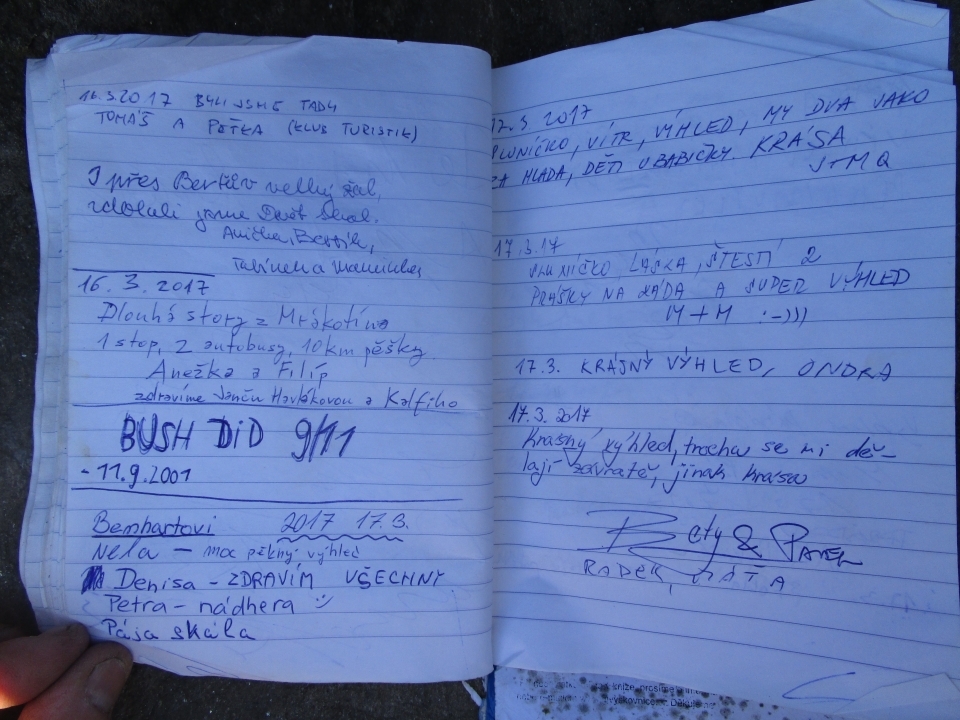 16.3.2017 BYLI JSME TADY
TOMÁŠ A PEŤKA (KLUB TURISTIK)
I přes velký žal,
zdolali jsme
Anička,
16. 3. 2017
Dlouhá story z Mrákotína
1 stop, 2 autobusy, 10km pěšky
Anežka a Filip
zdravíme Janču Havlíkovou a Kalfiho
BUSH DID 9/11
- 11.9.2001
Bernhartovi 2017 17.3.
Nela - moc pěkný výhled
Denisa - ZDRAVÍM VŠECHNY
Petra - nádhera
Pája skála
17.3 2017
SLUNÍČKO, VÍTR, VÝHLED, MY DVA JAKO
ZA MLADA, DĚTI U BABIČKY. KRÁSA
J+M
17.3.17
SLUNÍČKO LÁSKA, ŠTESTÍ 2
PRÁŠKY NA ZÁDA A SUPER VÝHLED
M+M :-)))
17.3. KRÁSNÝ VÝHLED, ONDRA
17.3. 2017
Krásný výhled, trochu se mi dě-
lají závratě, jinak krása
Bety & PAVEL
RADEK, MÁŤA
knize, prosíme